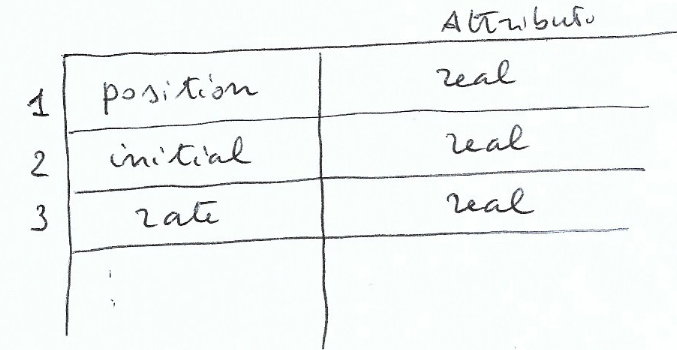 Attributo
1 position real
2 initial real
3 rate real